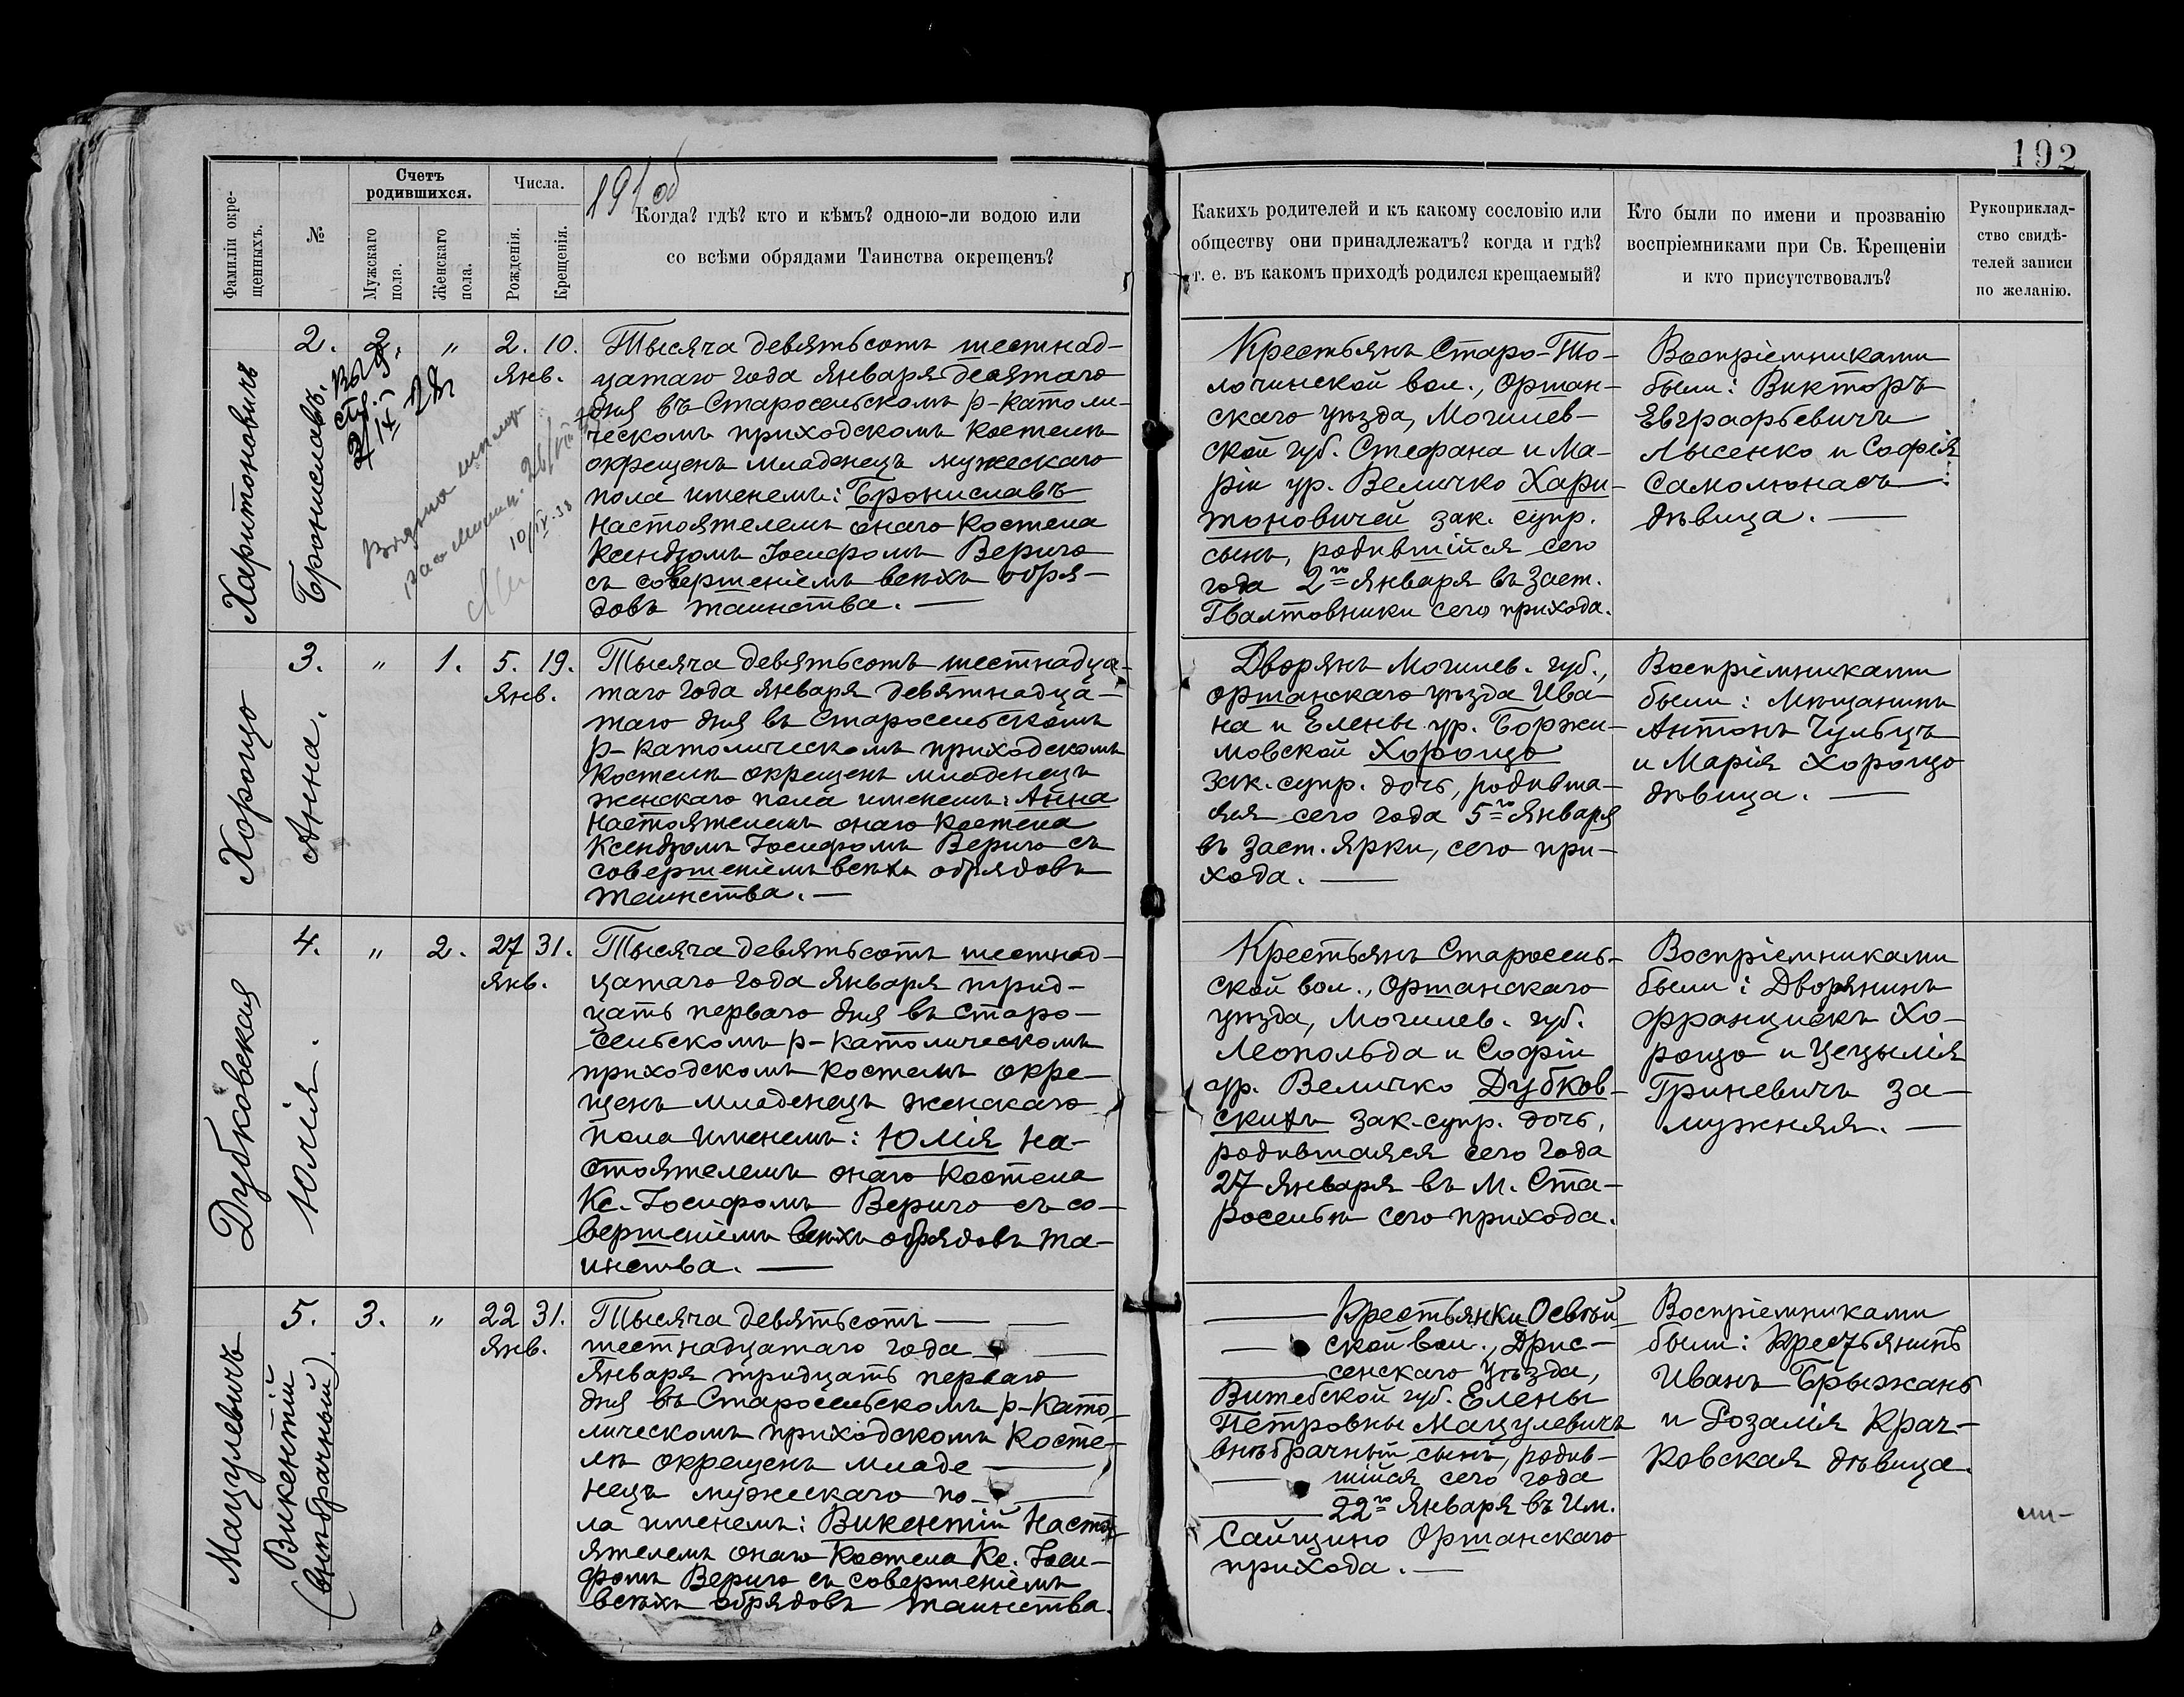 192
191 об
Фамиліи окре-
щенныхъ.
№
Счетъ
родившихся.
Мужскаго
пола.
Женскаго
пола.
Числа.
Рожденія.
Крещенія.
Когда? гдѣ? кто и кѣмъ? одною-ли водою или
со всѣми обрядами Таинства окрещенъ?
Какихъ родителей и къ какому сословію или
обществу они принадлежатъ? когда и гдѣ?
т. е. въ какомъ приходѣ родился крещаемый?
Кто были по имени и прозванію
воспріемниками при Св. Крещеніи
и кто присутствовалъ?
Рукоприклад-
ство свидѣ-
телей записи
по желанію.
Харитоновичъ
2.
Брониславъ.
2.
"
2. 10.
Янв.
10/IX-33
Тысяча девятьсотъ шестнад-
цатаго года Января десятаго
дня въ Старосельскомъ р-католи-
ческомъ приходскомъ костелѣ
окрещенъ младенецъ мужескаго
пола именемъ: Брониславъ
Настоятелемъ онаго костела
Ксендзомъ Іосифомъ Верыго
съ совершеніемъ всѣхъ обря-
довъ таинства. —
Крестьянъ Старо-То-
лочинской вол., Оршан-
скаго уѣзда, Могилев-
ской губ. Стефана и Ма-
ріи ур. Величко Хари-
тоновичей зак. супр.
сынъ, родившійся сего
года 2го Января въ заст.
Гвалтовники сего прихода.
Воспріемниками
были: Викторъ
Евграфьевичъ
Лысенко и Софія
Самолюнасъ
дѣвица. —
Хорощо
3.
Анна.
"
1.
5. 19.
Янв.
Тысяча девятьсотъ шестнадца-
таго года Января девятнадца-
таго дня въ Старосельскомъ
р-католическомъ приходскомъ
костелѣ окрещенъ младенецъ
женскаго пола именемъ: Анна
Настоятелемъ онаго костела
Ксендзомъ Іосифомъ Верыго съ
совершеніемъ всѣхъ обрядовъ
таинства. —
Дворянъ Могилев. губ.,
Оршанскаго уѣзда Ива-
на и Елены ур. Боржи-
мовской Хорощо
зак. супр. дочь, родивша-
яся сего года 5го Января
въ заст. Ярки, сего при-
хода. —
Воспріемниками
были: Мѣщанинъ
Антонъ Чульцъ
и Марія Хорощо
дѣвица. —
Дубковская
4.
Юлія.
"
2.
27 31.
Янв.
Тысяча девятьсотъ шестнад-
цатаго года Января трид-
цать перваго дня въ Старо-
сельскомъ р-католическомъ
приходскомъ костелѣ окре-
щенъ младенецъ женскаго
пола именемъ: Юлія На-
стоятелемъ онаго костела
Кс. Іосифомъ Верыго съ со-
вершеніемъ всѣхъ обрядовъ та-
инства. —
Крестьянъ Старосель-
ской вол., Оршанскаго
уѣзда, Могилев. губ.
Леопольда и Софіи
ур. Величко Дубков-
скихъ зак. супр. дочь,
родившаяся сего года
27 Января въ м. Ста-
росельи сего прихода.
Воспріемниками
были: Дворянинъ
Францискъ Хо-
рощо и Цецылія
Гриневичъ за-
мужняя. —
Мацулевичъ
5.
Викентій
(внѣбрачный).
3.
"
22 31.
Янв.
Тысяча девятьсотъ —
шестнадцатаго года
Января тридцать перваго
дня въ Старосельскомъ р-като-
лическомъ приходскомъ косте-
лѣ окрещенъ младе —
нецъ мужескаго по-
ла именемъ: Викентій Насто-
ятелемъ онаго костела Кс. Іоси-
фомъ Верыго съ совершеніемъ
всѣхъ обрядовъ таинства.
— Крестьянки Освѣй-
ской вол., Дрис-
сенскаго уѣзда,
Витебской губ. Елены
Петровны Мацулевичъ
внѣбрачный сынъ, родив-
шійся сего года
22го Января въ им.
Сайщино Оршанскаго
прихода. —
Воспріемниками
были: Крестьянинъ
Иванъ Брыжанъ
и Розалія Крач-
ковская дѣвица.